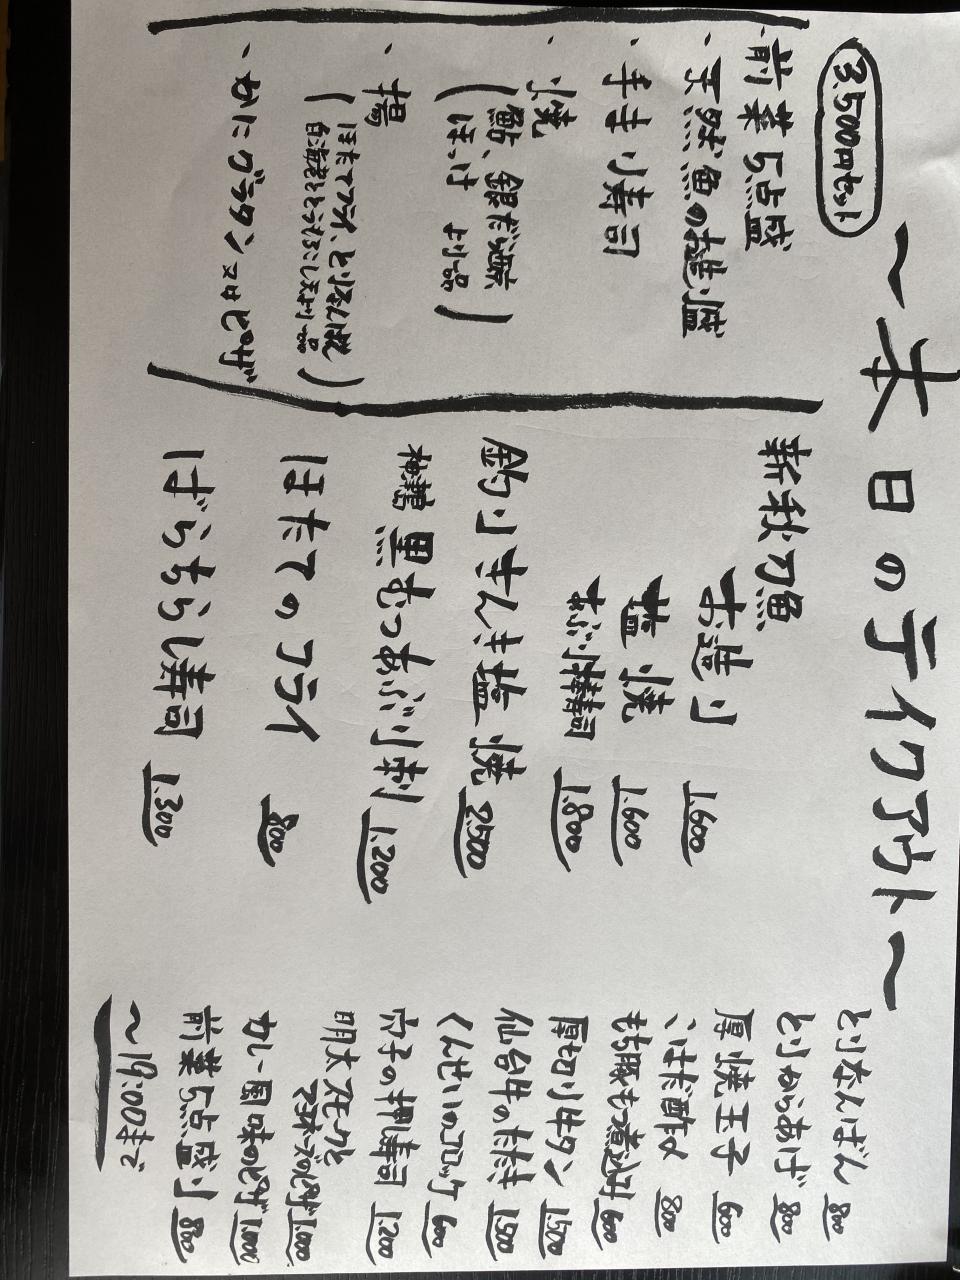 〜本日のテイクアウト〜
3.500円セット
前菜5点盛
・天然魚のお造り盛
・手まり寿司
・焼
(鮎、銀だら源
ほっけ より一品)
・揚
(ほたてフライ、とりなんばん
白海老とうもろこし天より一品)
・かにグラタン又はピザ
新秋刀魚
お造り 1.600
塩焼 1.600
あぶり棒寿司 1.800
釣りきんき塩焼 2.500
神経〆黒むつあぶり刺 1.200
ほたてのフライ 800
ばらちらし寿司 1.300
とりなんばん 800
とりからあげ 800
厚焼玉子 600
こはだ酢〆 800
もち豚もつ煮込み 600
厚切り牛タン 1.500
仙台牛のたたき 1.500
くんせいのコロッケ 600
穴子の押寿司 1.200
明太モッツァ
マヨネーズのピザ 1.000
カレー風味のピザ 1.000
前菜5点盛り 800
〜19:00まで